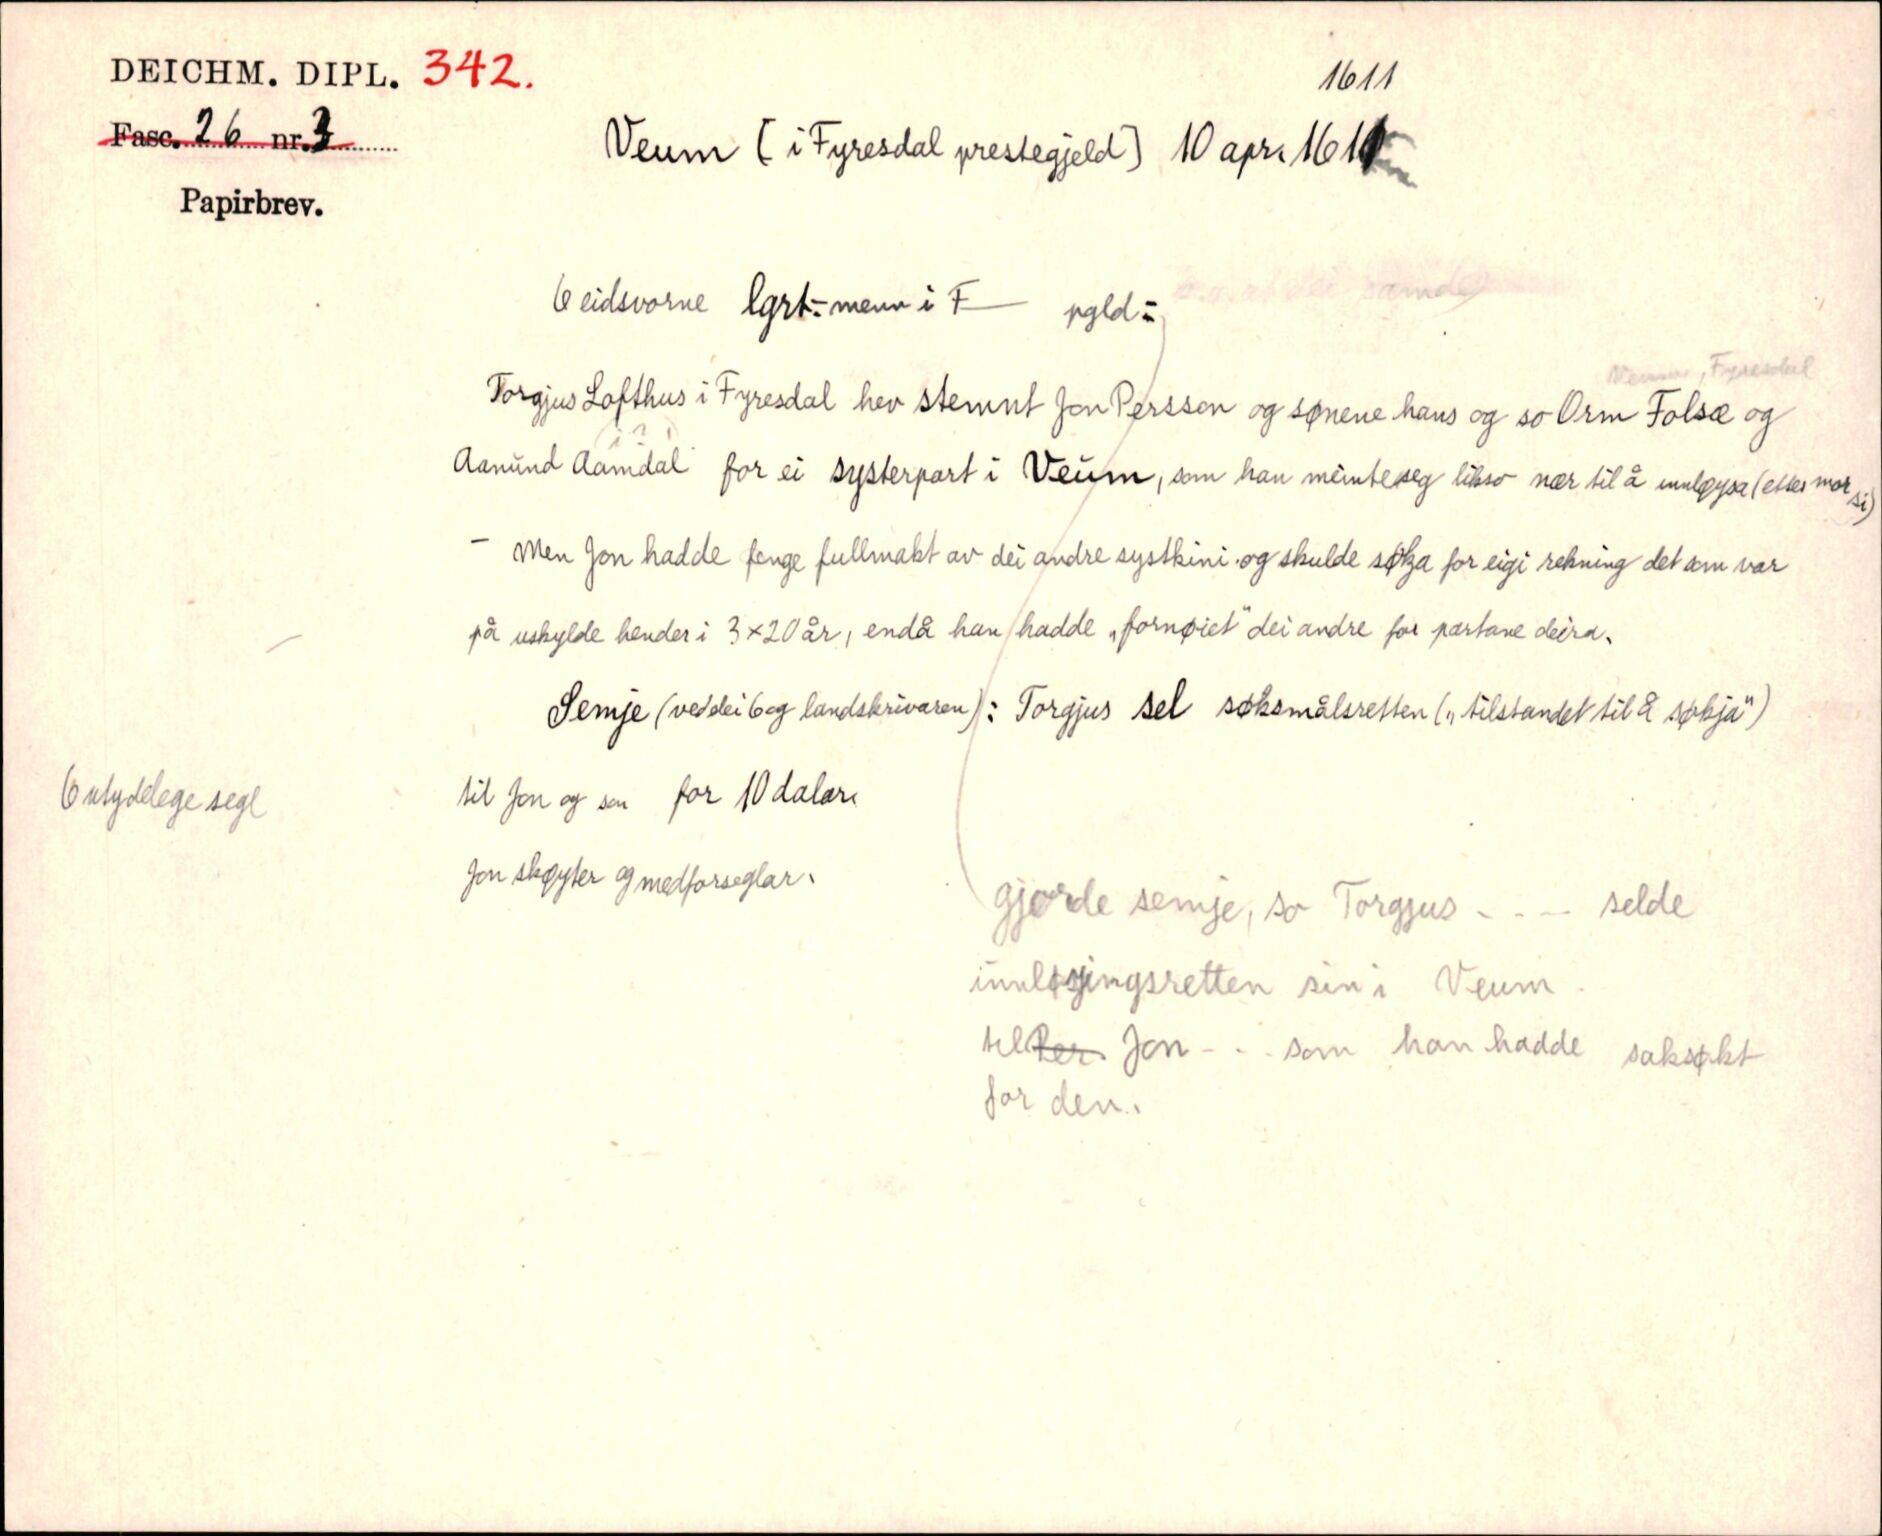 DEICHM. DIPL. 342.
1611
Fasc. 26 nr. 3
Veum [i Fyresdal prestegjeld] 10 apr. 1611
Papirbrev.
6 eidsvorne lgrt.-menn i F— pgld=
Veum, Fyresdal
Torgjus Lofthus i Fyresdal hev stemnt Jon Persson og sønene hans og so Orm Folsæ og
Aanund Aamdal for ei systerpart i Veum, som han meinte seg likso nær til å innløysa (etter mor si)
- Men Jon hadde fenge fullmakt av dei andre systkini og skulde søka for eigi rekning det som var
på uskylde hender i 3×20 år, endå han hadde „fornøiet" dei andre for partane deira.
Semje (ved dei 6 og landskrivaren): Torgjus sel søksmålsretten („tilstandet til å søkja")
6 utydelege segl
til Jon og son for 10 dalar.
Jon skøyter og medforseglar.
gjorde semje, so Torgjus - - - - selde
innløysingsretten sin i Veum.
til Per Jon - - - som han hadde saksøkt
for den.